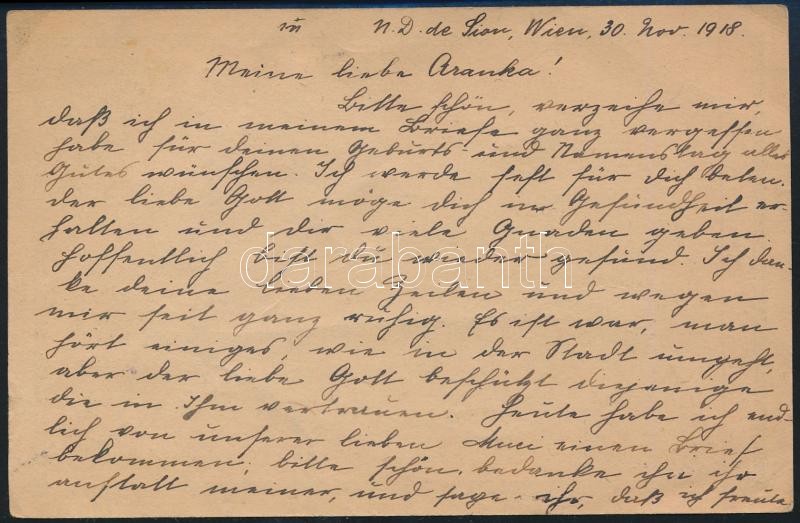 N. D. de Sion, Wien, 30. Nov. 1918.
Meine liebe Aranka!
Bitte schön, verzeihe mir,
daß ich in meinem Briefe ganz vergessen
habe für deinen Geburts- und Namenstag alles
Gutes wünschen. Ich werde fest für dich beten.
der liebe Gott möge dich in Gesundheit er-
halten und dir viele Gnaden geben.
Hoffentlich bist du wieder gesund. Ich dan-
ke deine lieben Zeilen und wegen
mir seit ganz ruhig. Es ist war, man
hört einiges, wie in der Stadt umgeht,
aber der liebe Gott beschützt diejenige
die in Ihm vertrauen. Heute habe ich end-
lich von unserer lieben Muci einen Brief
bekommen, bitte schön, bedanke ihn ihr
anstatt meiner, und sage ihr, daß ich freute
darabanth